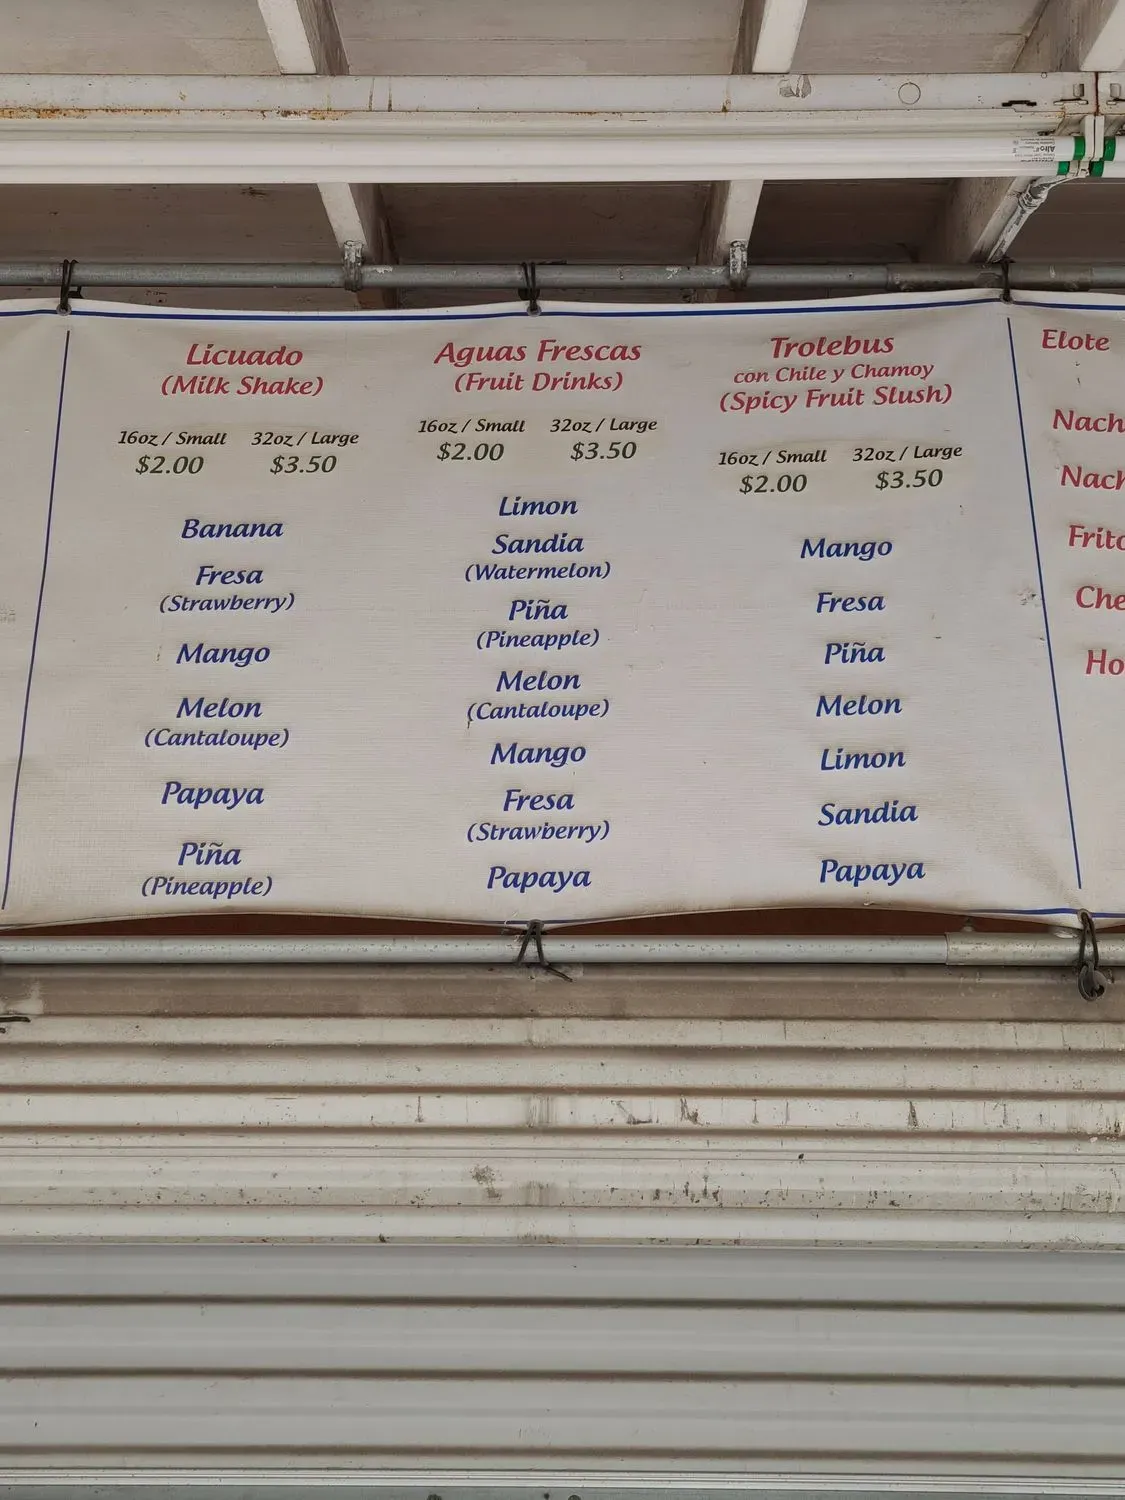 Licuado
(Milk Shake)
16oz / Small 32oz / Large
$2.00 $3.50
Banana
Fresa
(Strawberry)
Mango
Melon
(Cantaloupe)
Papaya
Piña
(Pineapple)
Aguas Frescas
(Fruit Drinks)
16oz / Small 32oz / Large
$2.00 $3.50
Limon
Sandia
(Watermelon)
Piña
(Pineapple)
Melon
(Cantaloupe)
Mango
Fresa
(Strawberry)
Papaya
Trolebus
con Chile y Chamoy
(Spicy Fruit Slush)
16oz / Small 32oz / Large
$2.00 $3.50
Mango
Fresa
Piña
Melon
Limon
Sandia
Papaya
Elote
Nach
Nach
Frito
Che
Ho